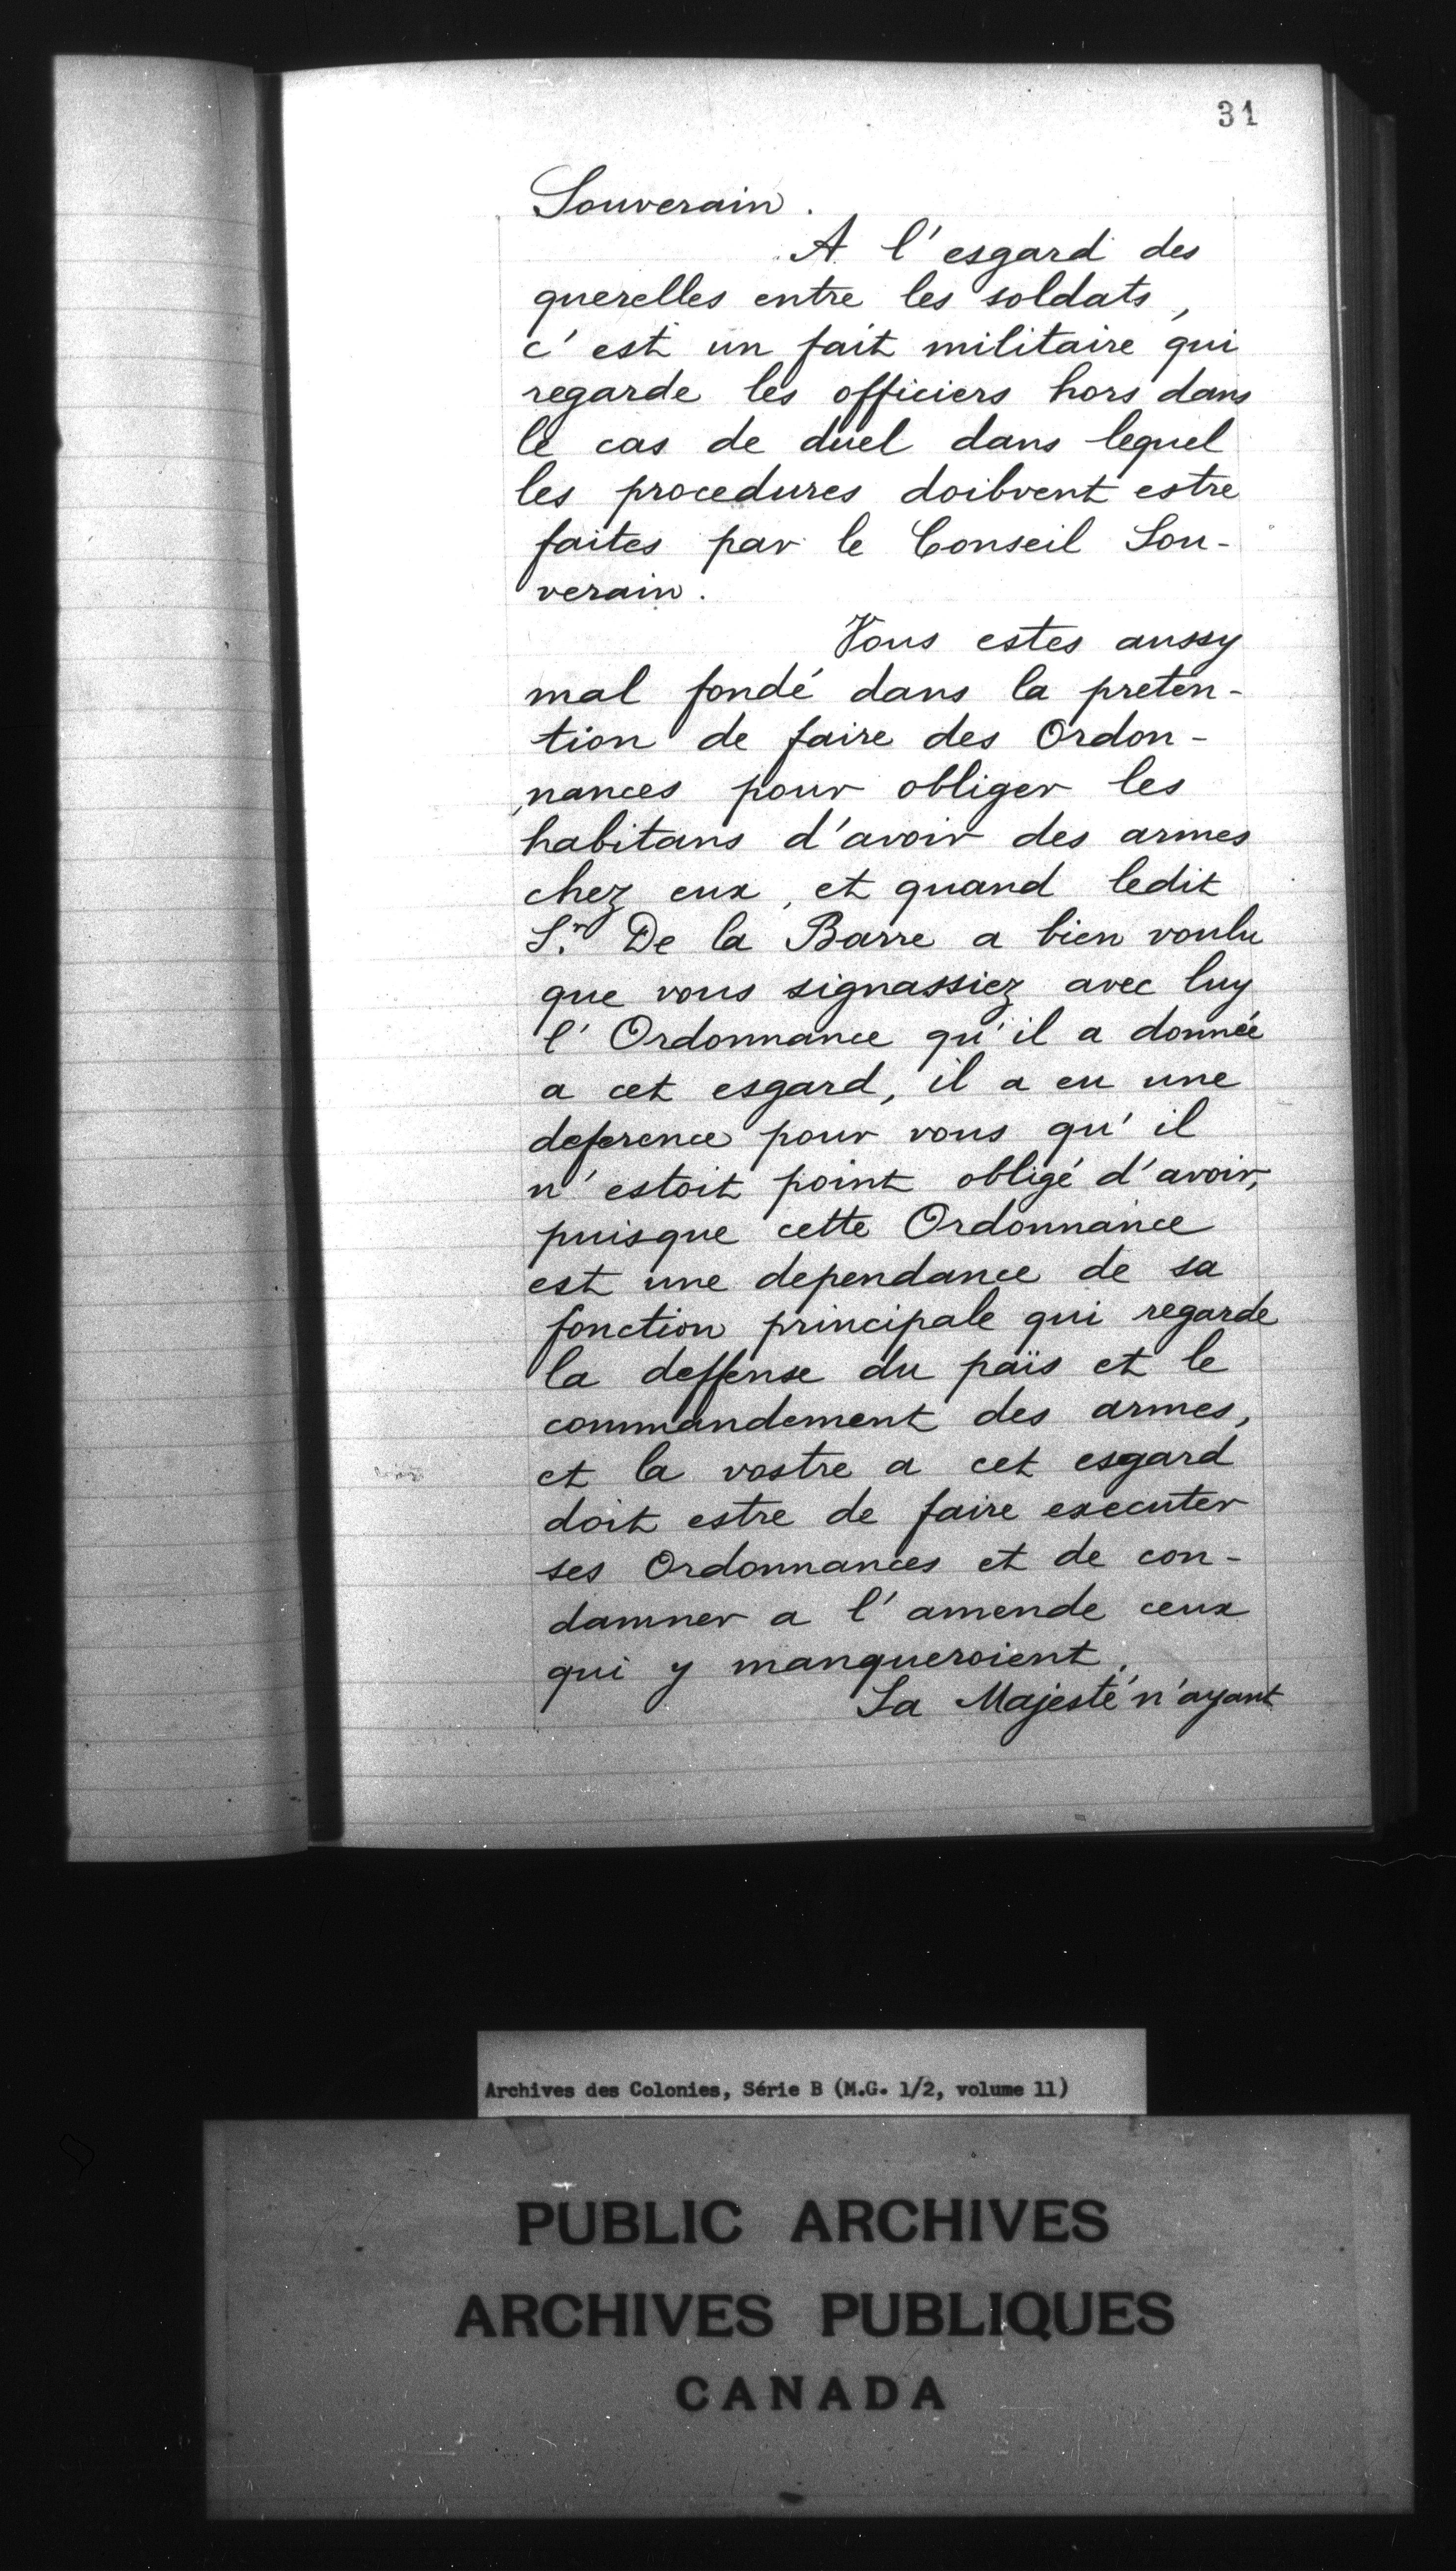 31
Souverain.
A l'esgard des
querelles entre les soldats,
c'est un fait militaire qui
regarde les officiers hors dans
le cas de duel dans lequel
les procedures doibvent estre
faites par le Conseil Sou-
verain.
Vous estes aussy
mal fondé dans la preten-
tion de faire des Ordon-
nances pour obliger les
habitans d'avoir des armes
chez eux, et quand ledit
S.r De la Barre a bien voulu
que vous signassiez avec luy
l'Ordonnance qu'il a donnée
a cet esgard, il a eu une
deference pour vous qu'il
n'estoit point obligé d'avoir,
puisque cette Ordonnance
est une dependance de sa
fonction principale qui regarde
la deffense du païs et le
commandement des armes,
et la vostre a cet esgard
doit estre de faire executer
ses Ordonnances et de con-
damner a l'amende ceux
qui y manqueroient.
Sa Majesté n'ayant
Archives des Colonies, Série B (M.G. 1/2, volume 11)
PUBLIC ARCHIVES
ARCHIVES PUBLIQUES
CANADA